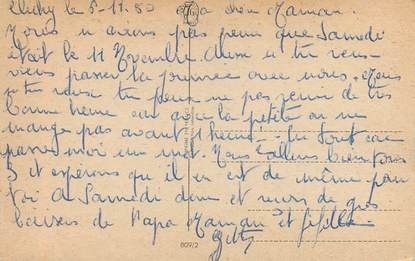 Clichy le 5-11-50 Ma chère Maman.
Nous n avons pas pensé que Samedi
était le 11 Novembre. Aussi si tu veux
viens passer la journée avec nous. Mais
si tu veux tu peux ne pas venir de très
bonne heure car avec la petite on ne
mange pas avant 1 heure. En tout cas
passe moi un mot. Nous allons bien tous
3 et espérons qu il en est de même pour
toi A Samedi donc et reçois de gros
baisers de Papa Maman et fifille
809/2